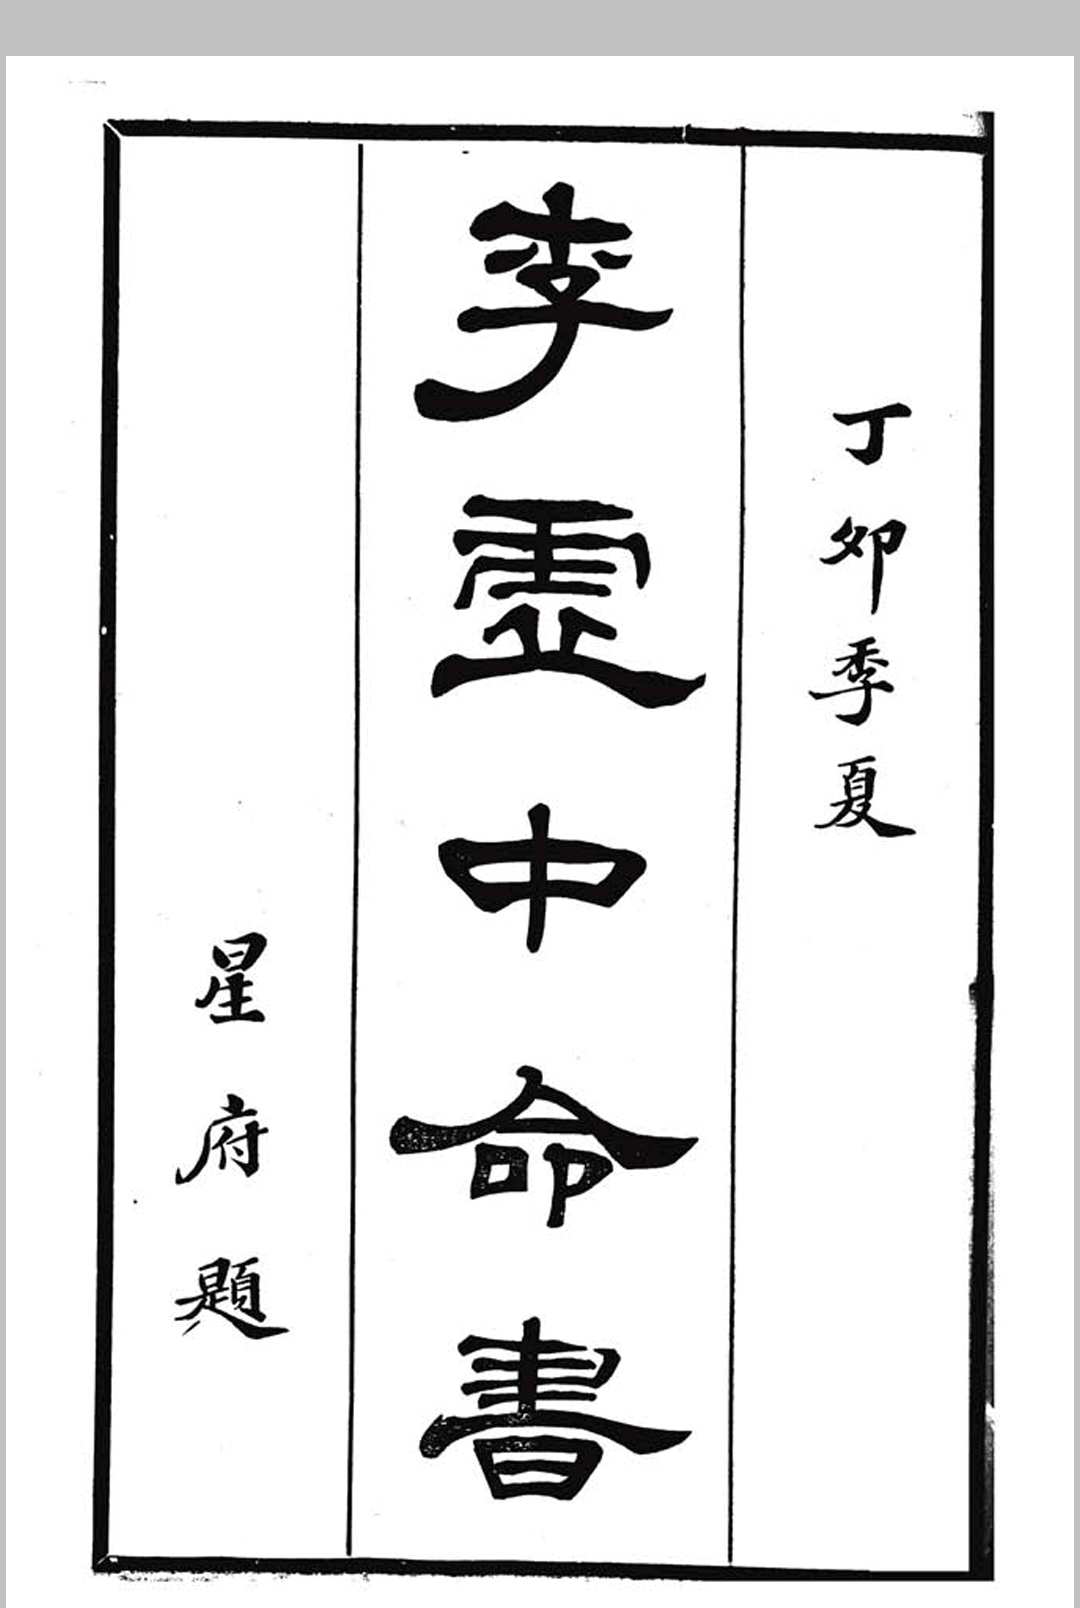 丁卯季夏
李虛中命書
星府題